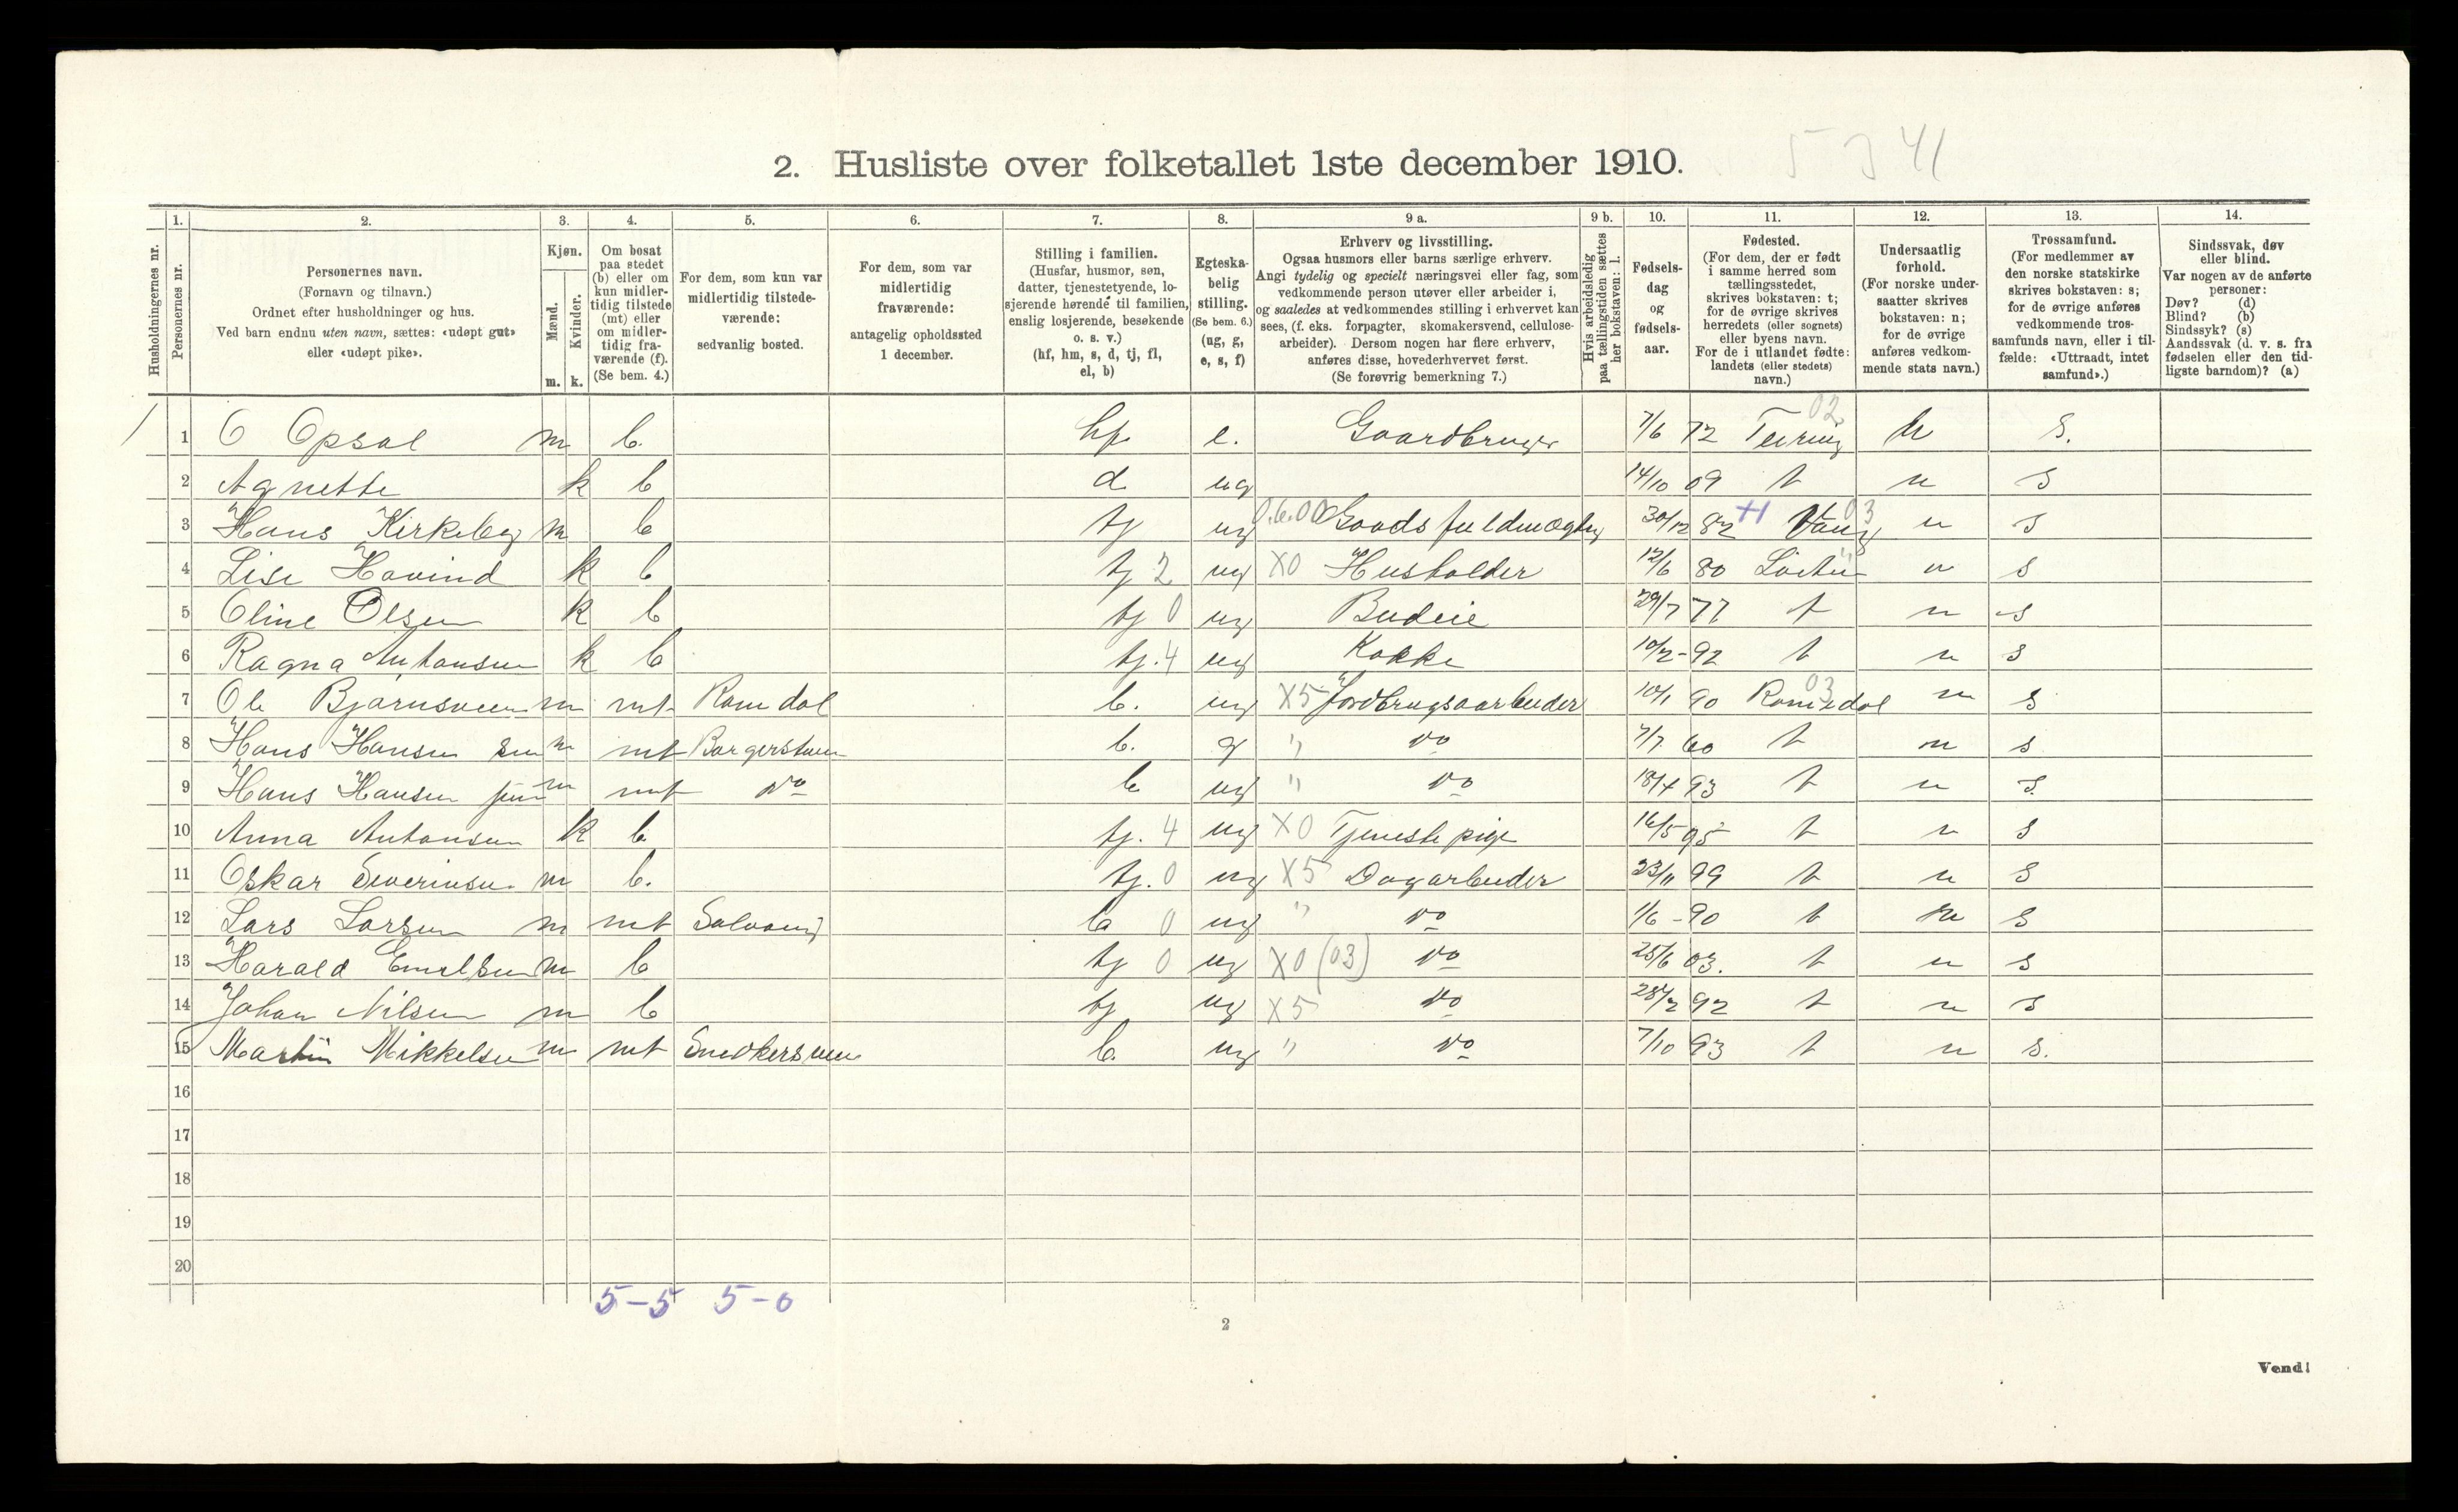 5 3 41
2. Husliste over folketallet 1ste december 1910.
Husholdningernes nr.
1.
Personernes nr.
2.
Personernes navn.
(Fornavn og tilnavn.)
Ordnet efter husholdninger og hus.
Ved barn endnu uten navn, sættes: «udøpt gut»
eller «udøpt pike».
3.
Kjøn.
Mænd.
Kvinder.
m. k.
4.
Om bosat
paa stedet
(b) eller om
kun midler-
tidig tilstede
(mt) eller
om midler-
tidig fra-
værende (f).
(Se bem. 4.)
5.
For dem, som kun var
midlertidig tilstede-
værende:
sedvanlig bosted.
6.
For dem, som var
midlertidig
fraværende:
antagelig opholdssted
1 december.
7.
Stilling i familien.
(Husfar, husmor, søn,
datter, tjenestetyende, lo-
sjerende hørende til familien,
enslig losjerende, besøkende
o. s. v.)
(hf, hm, s, d, tj, fl,
el, b)
8.
Egteska-
belig
stilling.
(Se bem. 6.)
(ug, g,
e, s, f)
9 a.
Erhverv og livsstilling.
Ogsaa husmors eller barns særlige erhverv.
Angi tydelig og specielt næringsvei eller fag, som
vedkommende person utøver eller arbeider i,
og saaledes at vedkommendes stilling i erhvervet kan
sees, (f. eks. forpagter, skomakersvend, cellulose-
arbeider). Dersom nogen har flere erhverv,
anføres disse, hovederhvervet først.
(Se forøvrig bemerkning 7.)
9 b.
Hvis arbeidsledig
paa tællingstiden sættes
her bokstaven: l.
10.
Fødsels-
dag
og
fødsels-
aar.
11.
Fødested.
(For dem, der er født
i samme herred som
tællingsstedet,
skrives bokstaven: t;
for de øvrige skrives
herredets (eller sognets)
eller byens navn.
For de i utlandet fødte:
landets (eller stedets)
navn.)
12.
Undersaatlig
forhold.
(For norske under-
saatter skrives
bokstaven: n;
for de øvrige
anføres vedkom-
mende stats navn.)
13.
Trossamfund.
(For medlemmer av
den norske statskirke
skrives bokstaven: s;
for de øvrige anføres
vedkommende tros-
samfunds navn, eller i til-
fælde: «Uttraadt, intet
samfund».)
14.
Sindssvak, døv
eller blind.
Var nogen av de anførte
personer:
Døv? (d)
Blind? (b)
Sindssyk? (s)
Aandssvak (d. v. s. fra
fødselen eller den tid-
ligste barndom)? (a)
1 1 O Opsal m b. hf e. Gaardbruger 7/6 72 02 n s.
2 Agnette k b d ug 14/10 09 t n s
3 Hans Kirkeby m b tj ug Gaardsfuldmægtig 30/12 82 +1 Vang 03 n s
4 Lise Hovind k b tj 2 ug X0 Husholder 12/6 80 Løiten n s
5 Oline Olsen k b tj 0 ug Budeie 29/7 77 t n s
6 Ragna Antonsen k b tj. 4 ug Kokke 10/2-92 t n s
7 Ole Bjørnsveen m mt Romedal b. ug X5 Jordbrugsarbeider 10/1 90 Romedal 03 n s
8 Hans Hansen sen m mt b. g " do 7/7 60 t n s
9 Hans Hansen jun m mt do b ug " do 18/4 93 t n s.
10 Anna Antonsen k b tj. 4 ug X0 Tjenestepige 16/5 95 t n s
11 Oskar Severinsen m b. tj. 0 ug X5 Dagarbeider 23/11 99 t n s
12 Lars Larsen m mt b 0 ug " do 1/6-90 t n s
13 Harald Emilsen m b tj 0 ug X0 (03) do 25/6 03. t n s
14 Johan Nilsen m b tj ug X5 do 28/2 92 t n s
15 Martin Mikkelsen m mt Snedkersveen b. ug " do 7/10 93 t n s.
16
17
18
19
20
5-5 5-0
2
Vend!